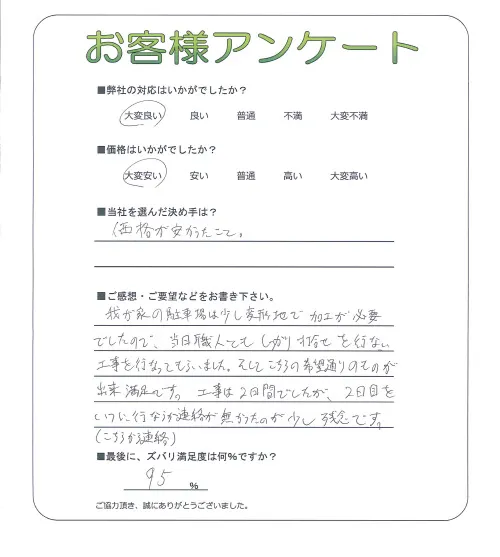 お客様アンケート
■弊社の対応はいかがでしたか？
大変良い 良い 普通 不満 大変不満
■価格はいかがでしたか？
大変安い 安い 普通 高い 大変高い
■当社を選んだ決め手は？
価格が安かったこと。
■ご感想・ご要望などをお書き下さい。
我が家の駐車場は少し変形地で加工が必要
でしたので、当日職人とも しっかり打合せを行ない
工事を行なってもらいました。そしてこちらの希望通りのものが
出来満足です。工事は2日間でしたが、2日目を
いつに行なうか連絡が無かったのが少し残念です。
(こちらから連絡)
■最後に、ズバリ満足度は何%ですか？
95 %
ご協力頂き、誠にありがとうございました。